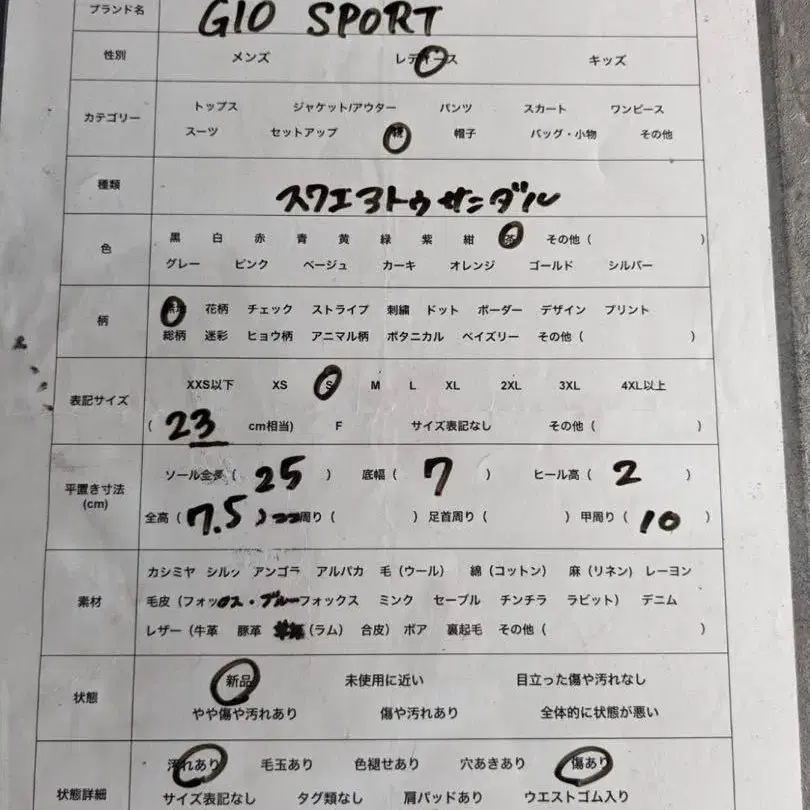 ブランド名 GIO SPORT
性別 メンズ レディース キッズ
カテゴリー トップス ジャケット/アウター パンツ スカート ワンピース
スーツ セットアップ 靴 帽子 バッグ・小物 その他
種類 スクエヨトゥサンダル
色 黒 白 赤 青 黄 緑 紫 紺 茶 その他 ( )
グレー ピンク ベージュ カーキ オレンジ ゴールド シルバー
柄 無地 花柄 チェック ストライプ 刺繍 ドット ボーダー デザイン プリント
総柄 迷彩 ヒョウ柄 アニマル柄 ボタニカル ペイズリー その他 ( )
表記サイズ XXS以下 XS S M L XL 2XL 3XL 4XL以上
( 23 cm相当) F サイズ表記なし その他 ( )
平置き寸法 (cm) ソール全長 ( 25 ) 底幅 ( 7 ) ヒール高 ( 2 )
全高 ( 7.5 ) 周り ( ) 足首周り ( ) 甲周り ( 10 )
素材 カシミヤ シルク アンゴラ アルパカ 毛 (ウール) 綿 (コットン) 麻 (リネン) レーヨン
毛皮 (フォックス・ブルーフォックス ミンク セーブル チンチラ ラビット) デニム
レザー (牛革 豚革 (ラム) 合皮) ボア 裏起毛 その他 ( )
状態 新品 未使用に近い 目立った傷や汚れなし
やや傷や汚れあり 傷や汚れあり 全体的に状態が悪い
状態詳細 汚れあり 毛玉あり 色褪せあり 穴あきあり 傷あり
サイズ表記なし タグ類なし 肩パッドあり ウエストゴム入り